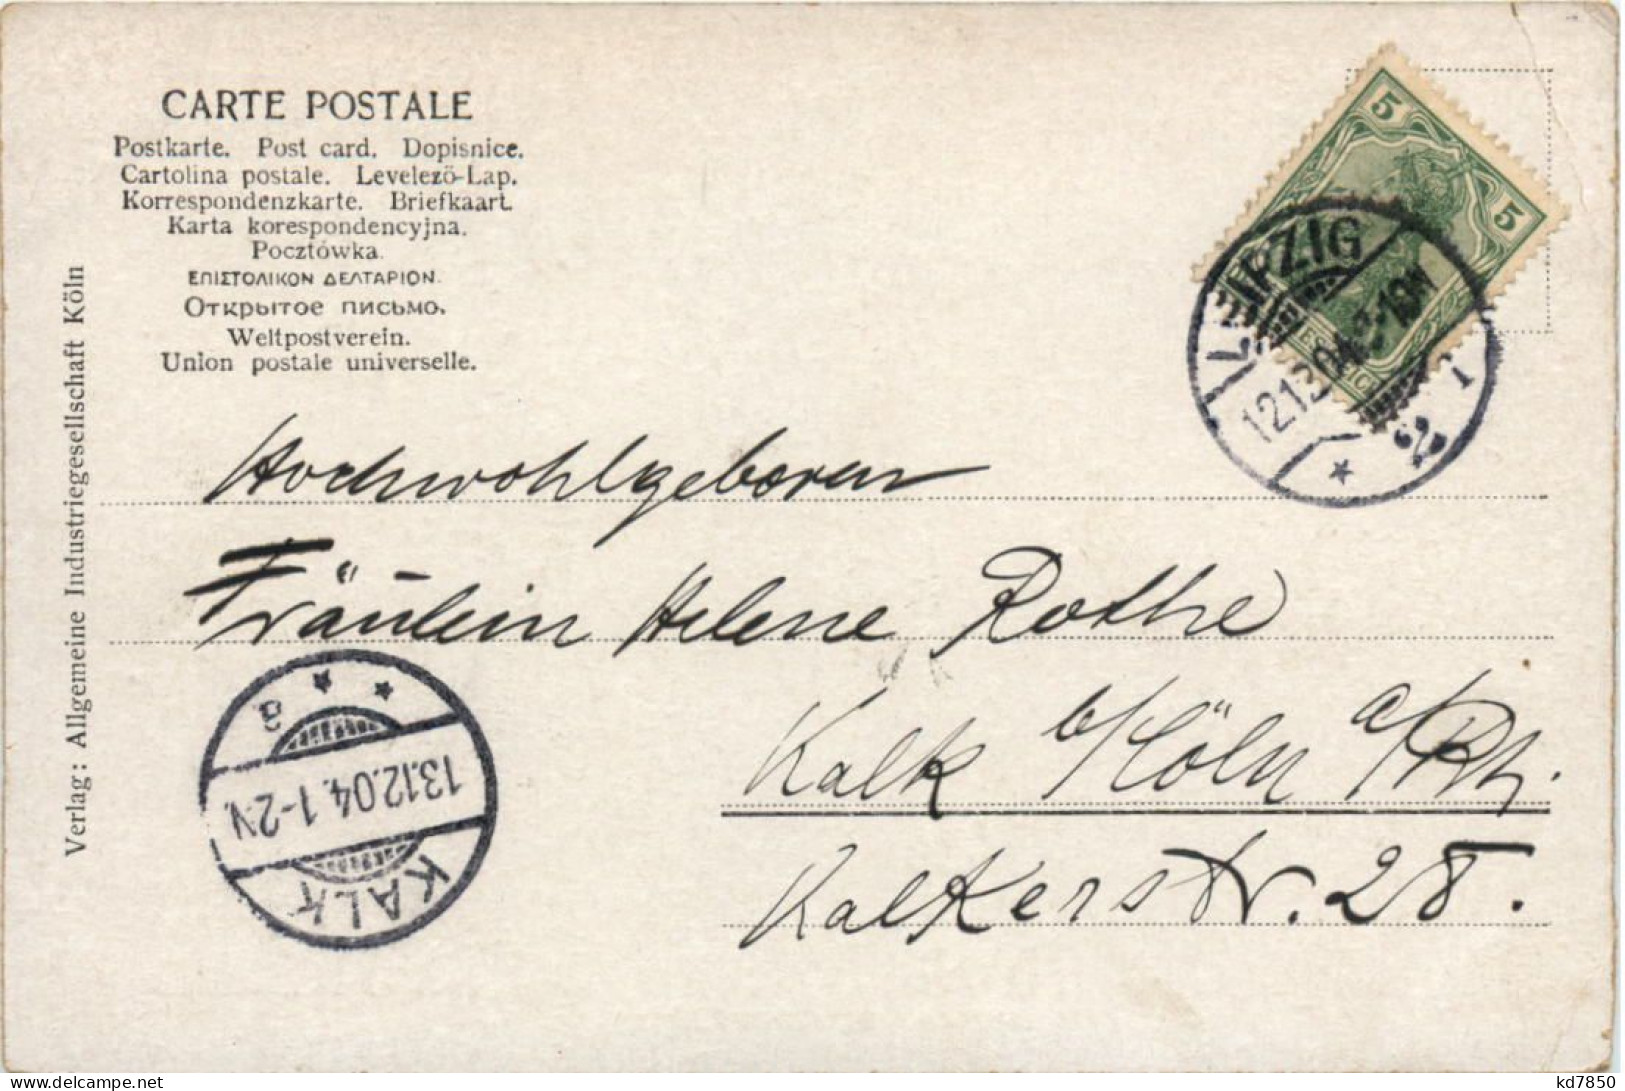 CARTE POSTALE
Postkarte. Post card. Dopisnice.
Cartolina postale. Levelező-Lap.
Korrespondenzkarte. Briefkaart.
Karta korespondencyjna.
Pocztówka.
ΕΠΙΣΤΟΛΙΚΟΝ ΔΕΛΤΑΡΙΟΝ.
Открытое письмо.
Weltpostverein.
Union postale universelle.
Verlag: Allgemeine Industriegesellschaft Köln
5 5
LEIPZIG
12.12.04. 9-10N
*2* i
Hochwohlgeboren
Fräulein Helene Rothe
Kalk b/Cöln a/Rh.
Kalkerstr. 28.
KALK
13.12.04. 1-2.N.
* * a
kd7850